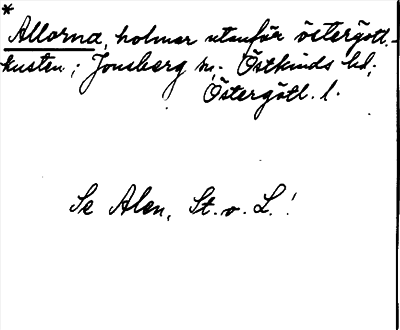 *
Allorna, holmar utanför östergötl.-
kusten; Jonsberg sn. Östkinds hd;
Östergötl. l.
Se Alen, St. o. L.!